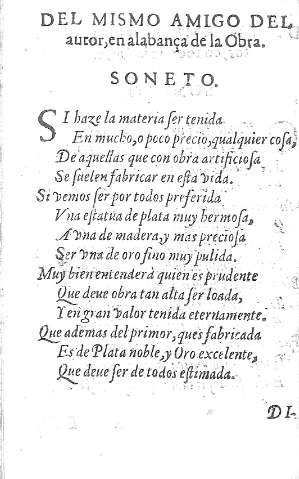 DEL MISMO AMIGO DEL
autor, en alabança de la Obra.
SONETO.
SI haze la materia ſer tenida
En mucho, o poco precio, qualquier coſa,
De aquellas que con obra artificioſa
Se ſuelen fabricar en eſta vida.
Si vemos ſer por todos preferida
Vna eſtatua de plata muy hermoſa,
A vna de madera, y mas precioſa
Ser vna de oro fino muy pulida.
Muy bien entenderá quien es prudente
Que deue obra tan alta ſer loada,
Y en gran valor tenida eternamente.
Que ademas del primor, ques fabricada
Es de Plata noble, y Oro excelente,
Que deue ſer de todos eſtimada.
DI-